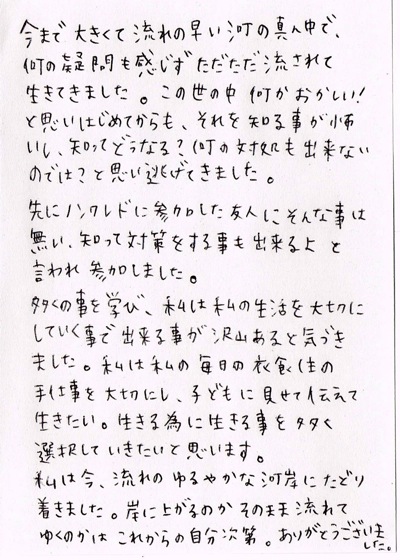 今まで大きくて流れの早い河の真ん中で、
何の疑問も感じずただただ流されて
生きてきました。この世の中 何かおかしい!
と思いはじめてからも、それを知る事が怖
いし、知ってどうなる?何の対処も出来ない
のでは?と思い逃げてきました。
先にノンクレドに参加した友人にそんな事は
無い、知って対策をする事も出来るよ と
言われ参加しました。
多くの事を学び、私は私の生活を大切に
していく事で出来る事が沢山あると気づき
ました。私は私の毎日の衣食住の
手仕事を大切にし、子どもに見せて伝えて
生きたい。生きる為に生きる事を多く
選択していきたいと思います。
私は今、流れのゆるやかな河岸にたどり
着きました。岸に上がるのかそのまま流れて
ゆくのかはこれからの自分次第。ありがとうございま
した。